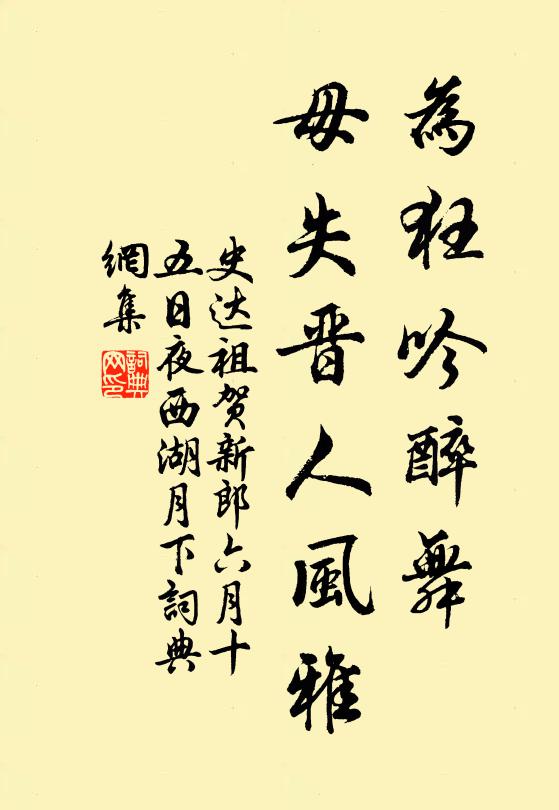 為狂吟醉舞
毋失晋人風雅
史达祖贺新郎六月十
五日夜西湖月下詞典
網集
詞典網印